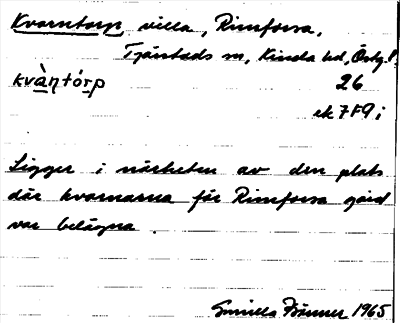 Kvarntorp, villa, Rimforsa,
Tjärstads sn, Kinda hd, Östg.
kvàn̩tórp 26
ek 7F9i
Ligger i närheten av den plats
där kvarnarna för Rimforsa gård
var belägna.
Gunilla 1965